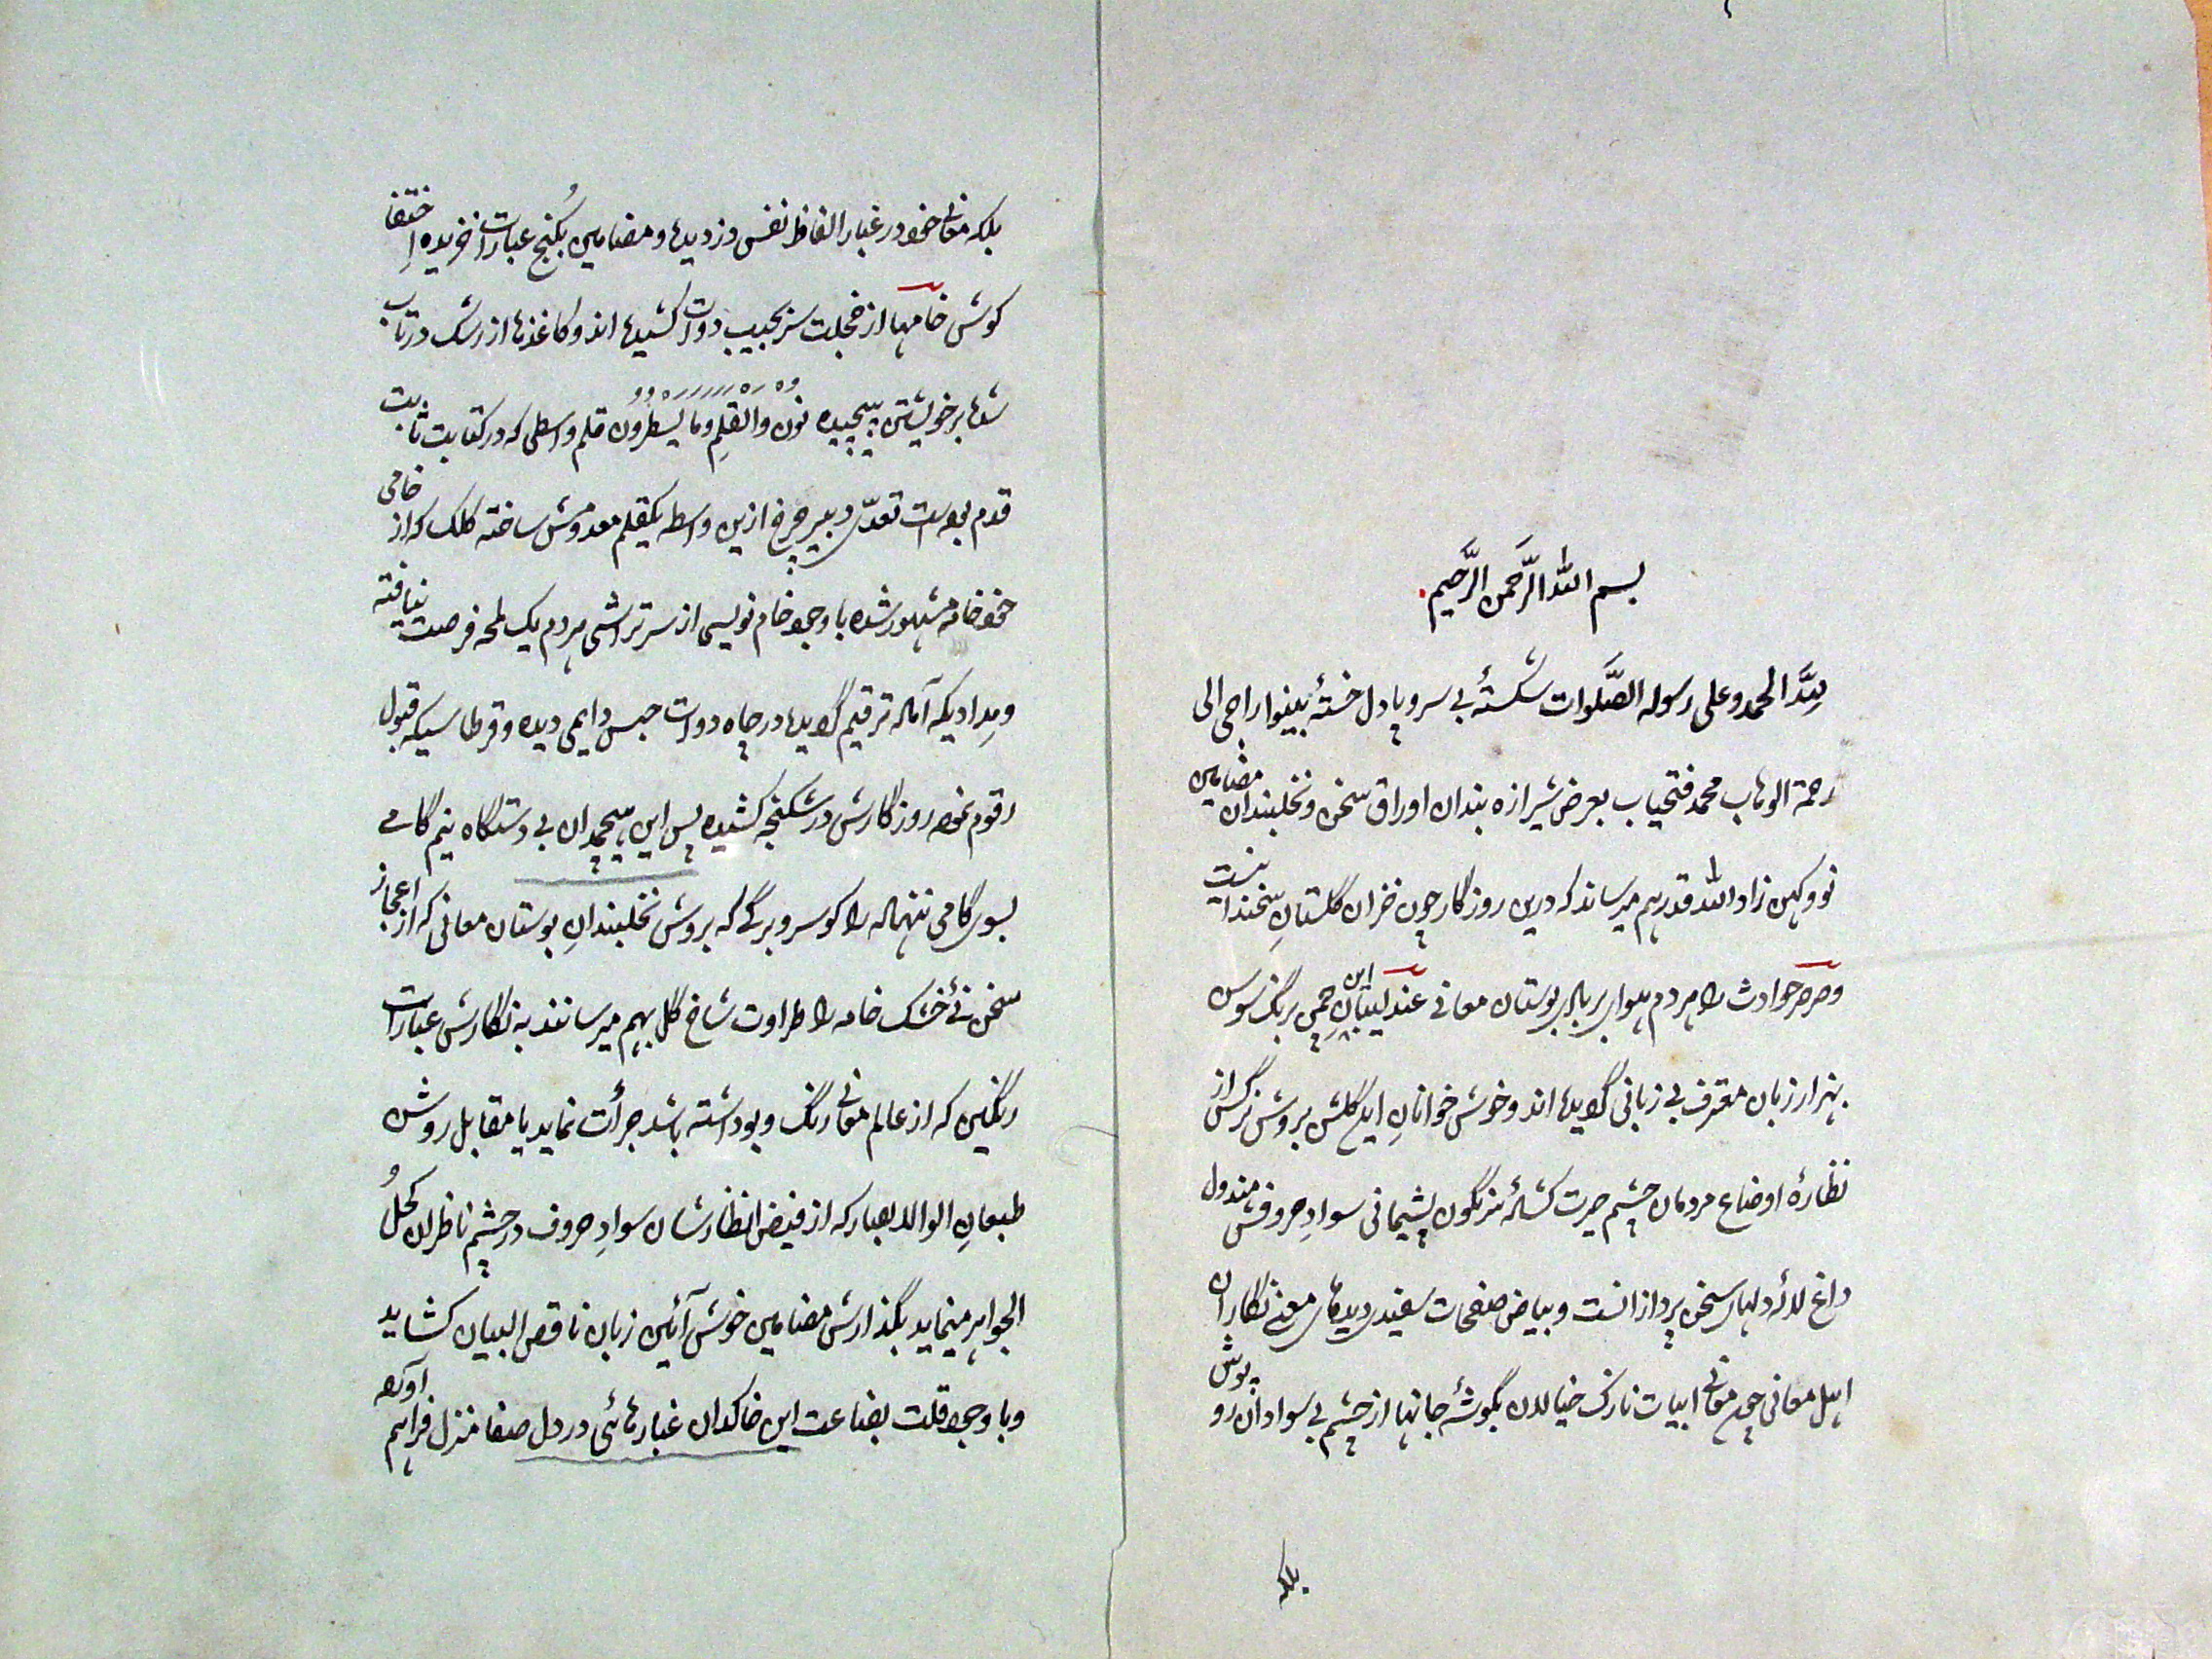 بسم الله الرَّحمن الرَّحیم
للهِ الحمد و علی رسوله الصَّلوات شکستهٔ بی سر و پا دل خستهٔ بینوا راجی الی
رحمة الوهاب محمد فتحیاب بعرض شیرازه بندان اوراق سخن و نخلبندان مضامین
نو و کهن زاد الله قدرهم میرساند که درین روزگار چون خزان گلستانِ سخندانیست
و صرصر حوادث را هر دم هوای بربادی بوستان معانی عندلیبانِ این چمن برنگ سوسن
بهزار زبان معترف بی زبانی گردیده اند و خوش خوانانِ این گلشن بروش نرگس از
نظارهٔ اوضاع مردمان چشم حیرت کشاده سرنگون پشیمانی سوادِ حروفش
داغ لالهٔ دلهای سخن پردازانست و بیاض صفحات سفیدی دیدهای معنی نگاران
اهل معانی چون معانی ابیات نازک خیالان بگوشهٔ جانها از چشم بی سوادان روپوش
بلکه
بلکه معانی خود در غبار الفاظ نفس دزدیده و مضامین بکُنج عبارات خزیده اِختفا
کوش خامها از خجلت سر بجیب دوات کشیده اند و کاغذها از رشک در تاب
شده بر خویشتن پیچیده نون والقلمِ وما یسطرُون قلم واسطی که در کتابت ثابت
قدم بود دست تعدّی دبیر چرخ ازین واسطه یکقلم معدومش ساخته کلک که از خامی
خود خامه مشهور شده با وجود خام نویسی از سر تراشی مردم یک لمحه فرصت نیافته
و مِدادیکه آماله ترقیم گردیده در چاه دوات حبس دایمی دیده و قرطاسیکه قبول
رقوم نموده روزگارش در شکنجه کشیده پس این هیچمدان بی دستگاه نیم گامے
بسوی گامی ننهاده را کو سر و برگے که بروش نخلبندانِ بوستان معانی که از اعجاز
سخن نئے خشک خامه را طراوت شاخ گل بهم میرسانند به نگارش عبارات
رنگین که از عالم معانی رنگ و بو داشته باشد جرأت نماید یا مقابل روشن
طبعانِ اولوالابصار که از فیض انظار شان سوادِ حروف در چشم ناظران کحلُ
الجواهر مینماید بگذارش مضامین خوش آئین زبان ناقص البیان کشاید
و با وجود قلت بضاعت این خاکدان غبارهائی در دل صفا منزل فراهم آورده